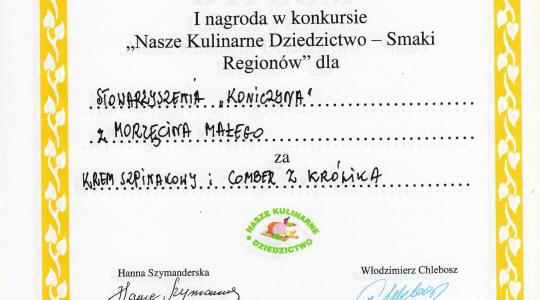 I nagroda w konkursie
„Nasze Kulinarne Dziedzictwo – Smaki
Regionów” dla
STOWARZYSZENIA „KONICZYNA"
Z MORZĘCINA MAŁEGO
za
KREM SZPINAKOWY i COMBER Z KRÓLIKA
NASZE KULINARNE
DZIEDZICTWO
Hanna Szymanderska
Włodzimierz Chlebosz